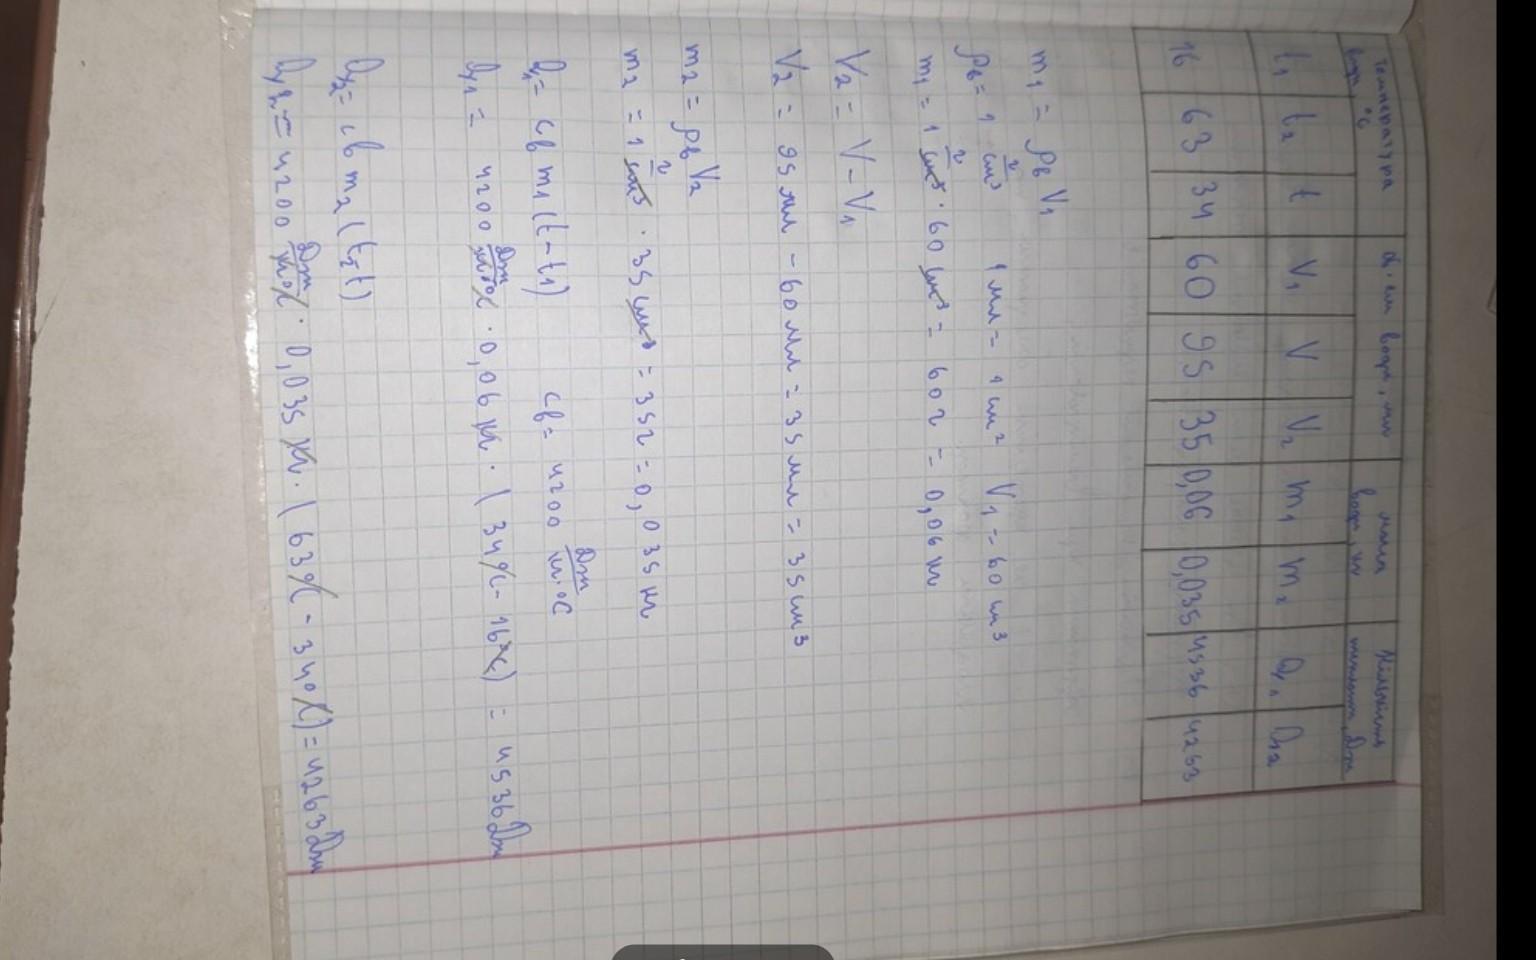 Температура води, °С | об'єм води, мл | маса води, кг | Кількість теплоти, Дж
t₁ t₂ t V₁ V V₂ m₁ m₂ Q₁ Q₂
16 63 34 60 95 35 0,06 0,035 4536 4263
m₁ = ρв V₁
ρв = 1 г/см³ 1 мл = 1 см² V₁ = 60 см³
m₁ = 1 г/см³ · 60 см³ = 60 г = 0,06 кг
V₂ = V - V₁
V₂ = 95 мл - 60 мл = 35 мл = 35 см³
m₂ = ρв V₂
m₂ = 1 г/см³ · 35 см³ = 35 г = 0,035 кг
Q₁ = cв m₁ (t - t₁) cв = 4200 Дж/кг·°С
Q₁ = 4200 Дж/кг·°С · 0,06 кг · (34°С - 16°С) = 4536 Дж
Q₂ = cв m₂ (t₂ - t)
Q₂ = 4200 Дж/кг·°С · 0,035 кг · (63°С - 34°С) = 4263 Дж